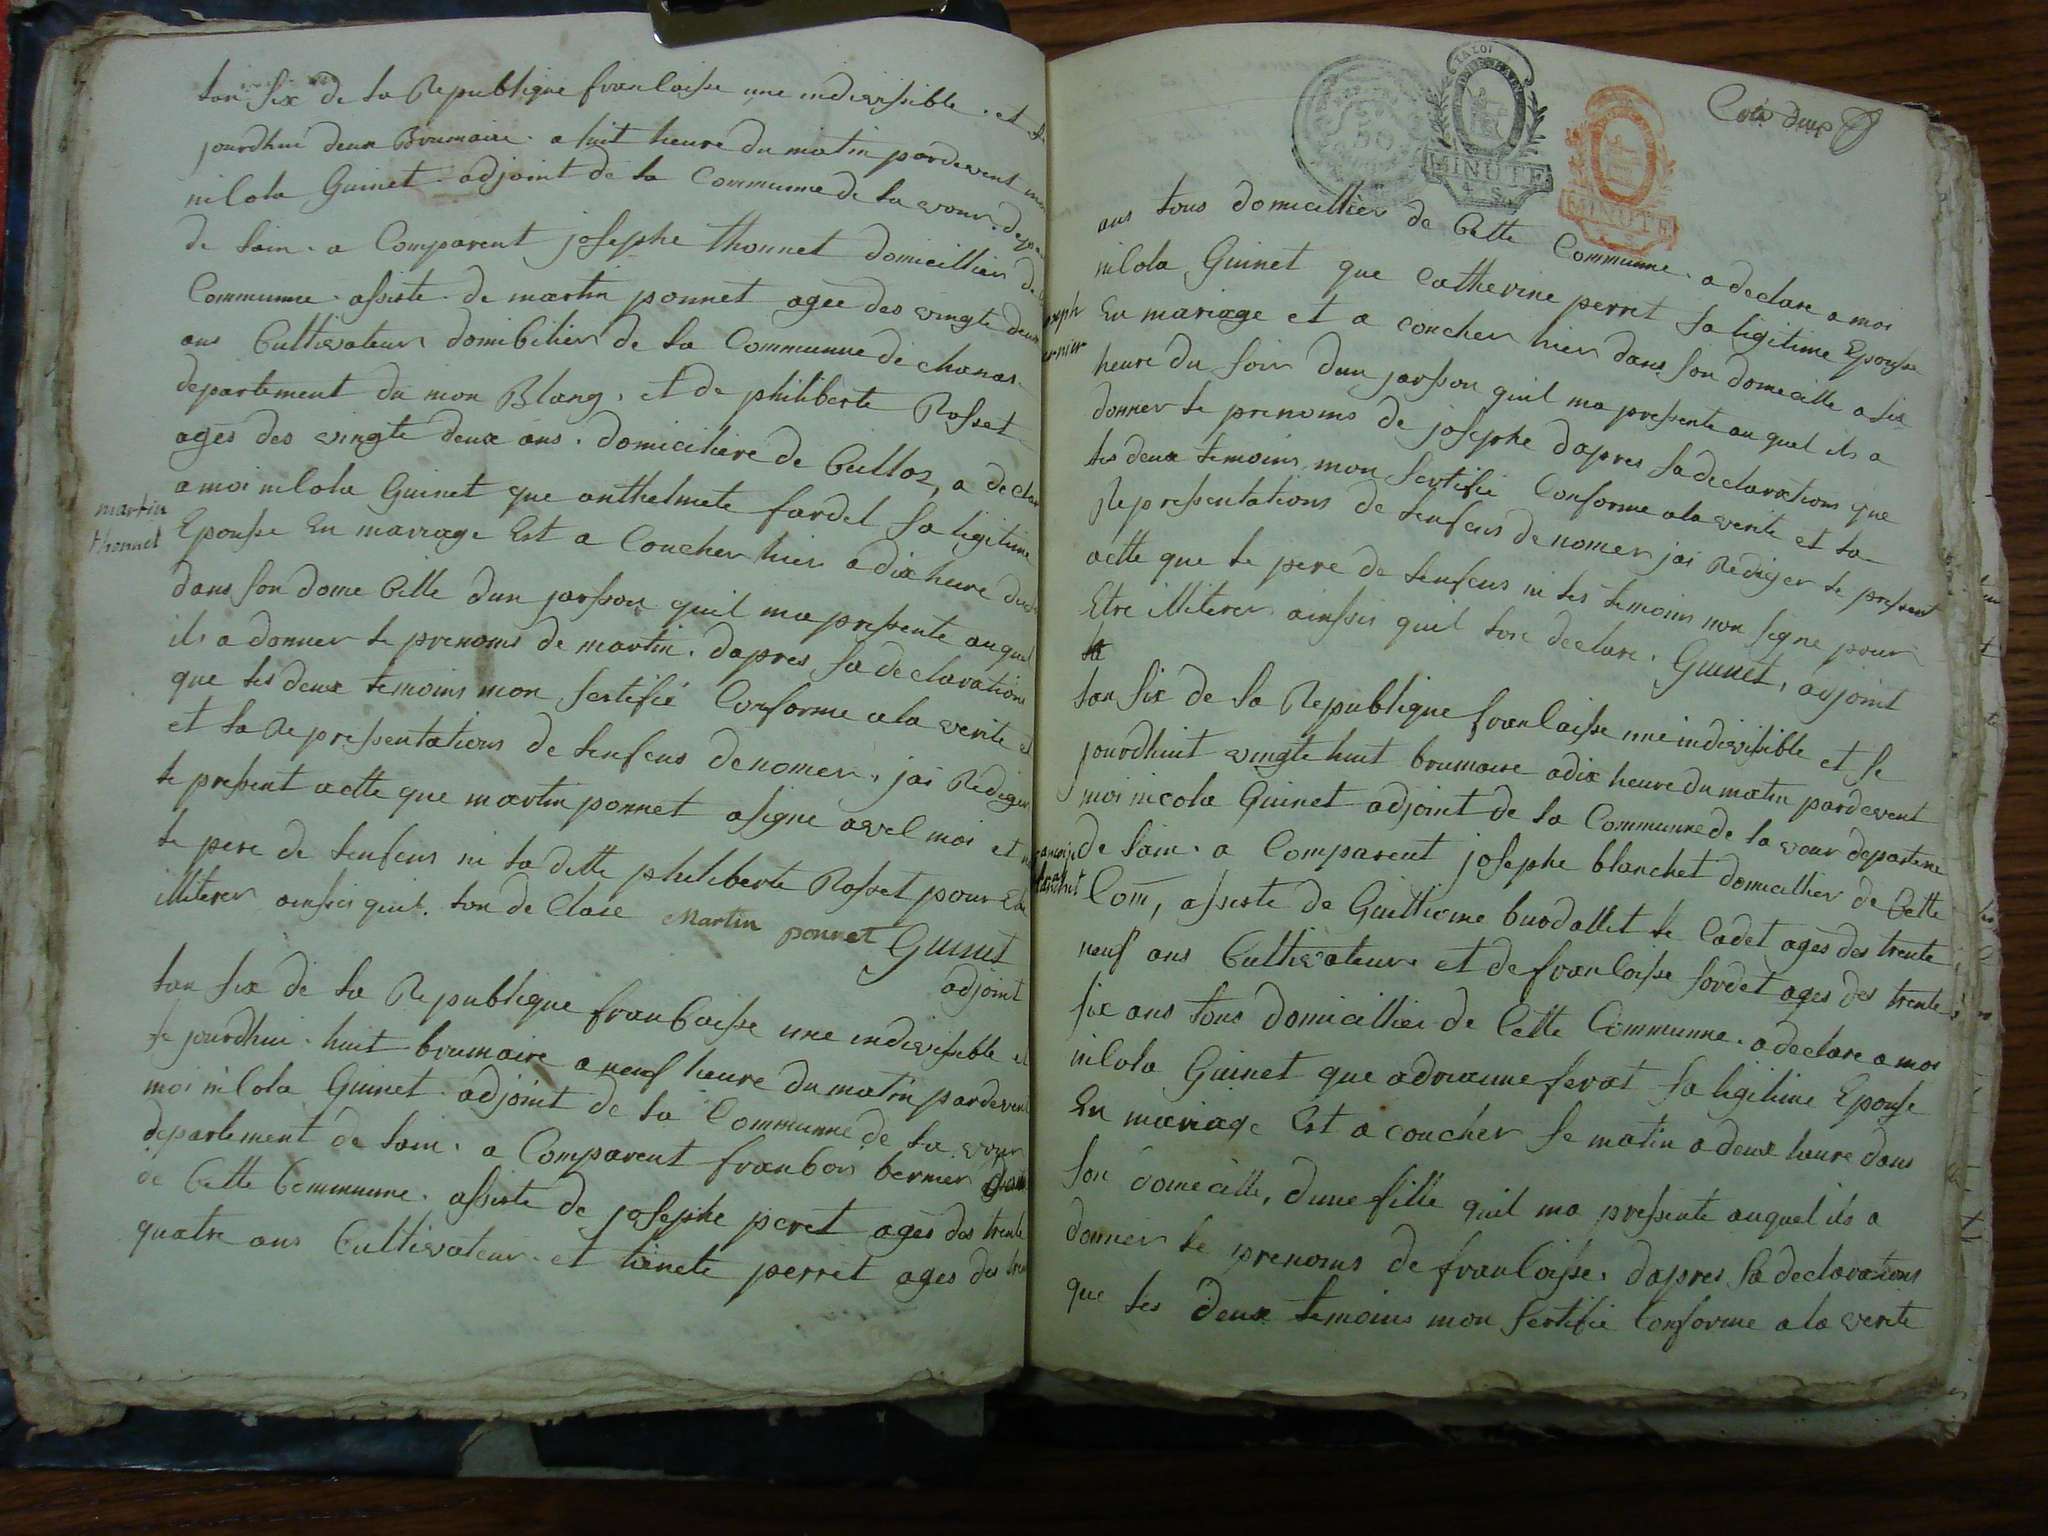 lan six de la Republique franlaisse une indivissible. et se
jourdhui deux Brumaire. a huit heure du matin pardevent moi
nilola Guinet adjoint de la Commune de la vour. depa
de lain. a Comparent josephe thonnet domicillier de
Commune. assiste. de martin ponnet agee des vingte deux
ans Cultivateur domibilier de la Commune de chanas
departement du mon Blang. et de philiberte Rosset
ages des vingte deux ans. domiciliere de Cullos, a declar
a moi nilola Guinet que anthelmete fardel sa ligitime
martin
thonnet
Epousse En mariage Est a Coucher hier a dix heure du
dans son dome Cille dun jarsson quil ma pressente auquel
ils a donner le prenoms de martin. dapres sa declarations
que les deux temoins mon sertifié Conforme a la verite et
et la Representations de lenfens denomer, jai Rediger
le pressent actte que martin ponnet asigne avel moi et
le pere de lenfens ni la ditte philiberte Rosset pour Etre
illiterer ainssis quil. lon de Clare Martin ponnet Guinet
adjoint
lan six de la Republique franCaisse une indivissible et
se jourdhui. huit brumaire a neuf heure du matin pardevent
moi nilola Guinet adjoint de la Commune de la vour
departement de lain. a Comparent franCois bernier
de Cette Commune. assiste de josephe peret ages des trente
quatre ans Cultivateur. et tienete perret ages des
Cote deux
LA LOI
MINUTE
MINUTE
ans tous domicillier de Cette Commune. a declare a moi
nilola Guinet que Catherine perret sa ligitime Epousse
En mariage et a coucher hier dans son domicille a six
heure du soir dun jarsson quil ma pressente au quel ils a
donner le prenoms de josephe dapres sa declarations que
les deux temoins mon sertifié Conforme a la verite et la
Representations de lenfens denomer jai Rediger le pressent
actte que le pere de lenfens ni les temoins non signe pour
Etre illiterer ainssis quil lon declare. Guinet, adjoint
lan six de la Republique franlaisse une indivissible et se
jourdhuit vingte huit brumaire a dix heure du matin pardevent
moi nicola Guinet adjoint de la Commune de la vour departeme
de lain. a Comparent josephe blanchet domicillier de Cette
Com, assiste de Guilliome buodallet le Cadet ages des trente
neuf ans Cultivateur. et de franloisse fordet ages des trente
six ans tous domicillier de Cette Commune. a declare a moi
nilola Guinet que adrianne ferat sa ligitime Epousse
En mariage Est a coucher se matin a deux heure dans
son domicille, dune fille quil ma pressente auquel ils a
donner le prenoms de franloisse. dapres sa declarations
que les deux temoins mon sertifie Conforme a la verite